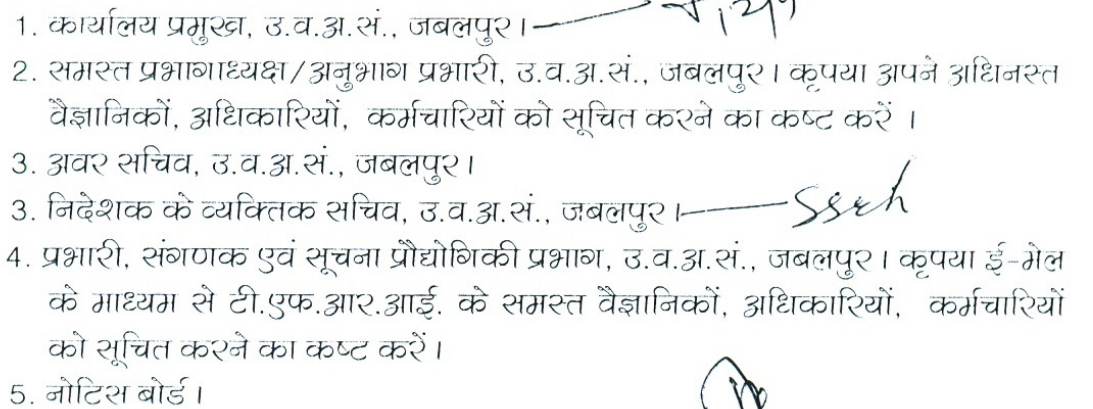 1. कार्यालय प्रमुख, उ.व.अ.सं., जबलपुर।
2. समस्त प्रभागाध्यक्ष/अनुभाग प्रभारी, उ.व.अ.सं., जबलपुर। कृपया अपने अधिनस्त
वैज्ञानिकों, अधिकारियों, कर्मचारियों को सूचित करने का कष्ट करें ।
3. अवर सचिव, उ.व.अ.सं., जबलपुर।
3. निदेशक के व्यक्तिक सचिव, उ.व.अ.सं., जबलपुर।
4. प्रभारी, संगणक एवं सूचना प्रौद्योगिकी प्रभाग, उ.व.अ.सं., जबलपुर। कृपया ई-मेल
के माध्यम से टी.एफ.आर.आई. के समस्त वैज्ञानिकों, अधिकारियों, कर्मचारियों
को सूचित करने का कष्ट करें।
5. नोटिस बोर्ड।